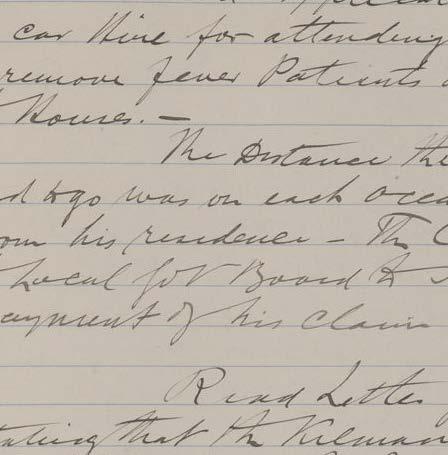 car hire for attending
remove fever Patients
Houses. —
The Distance the
to go was on each occa
om his residence — The C
Local Gov Board to
ayment of his claim
Read Letter
tating that the Kilman